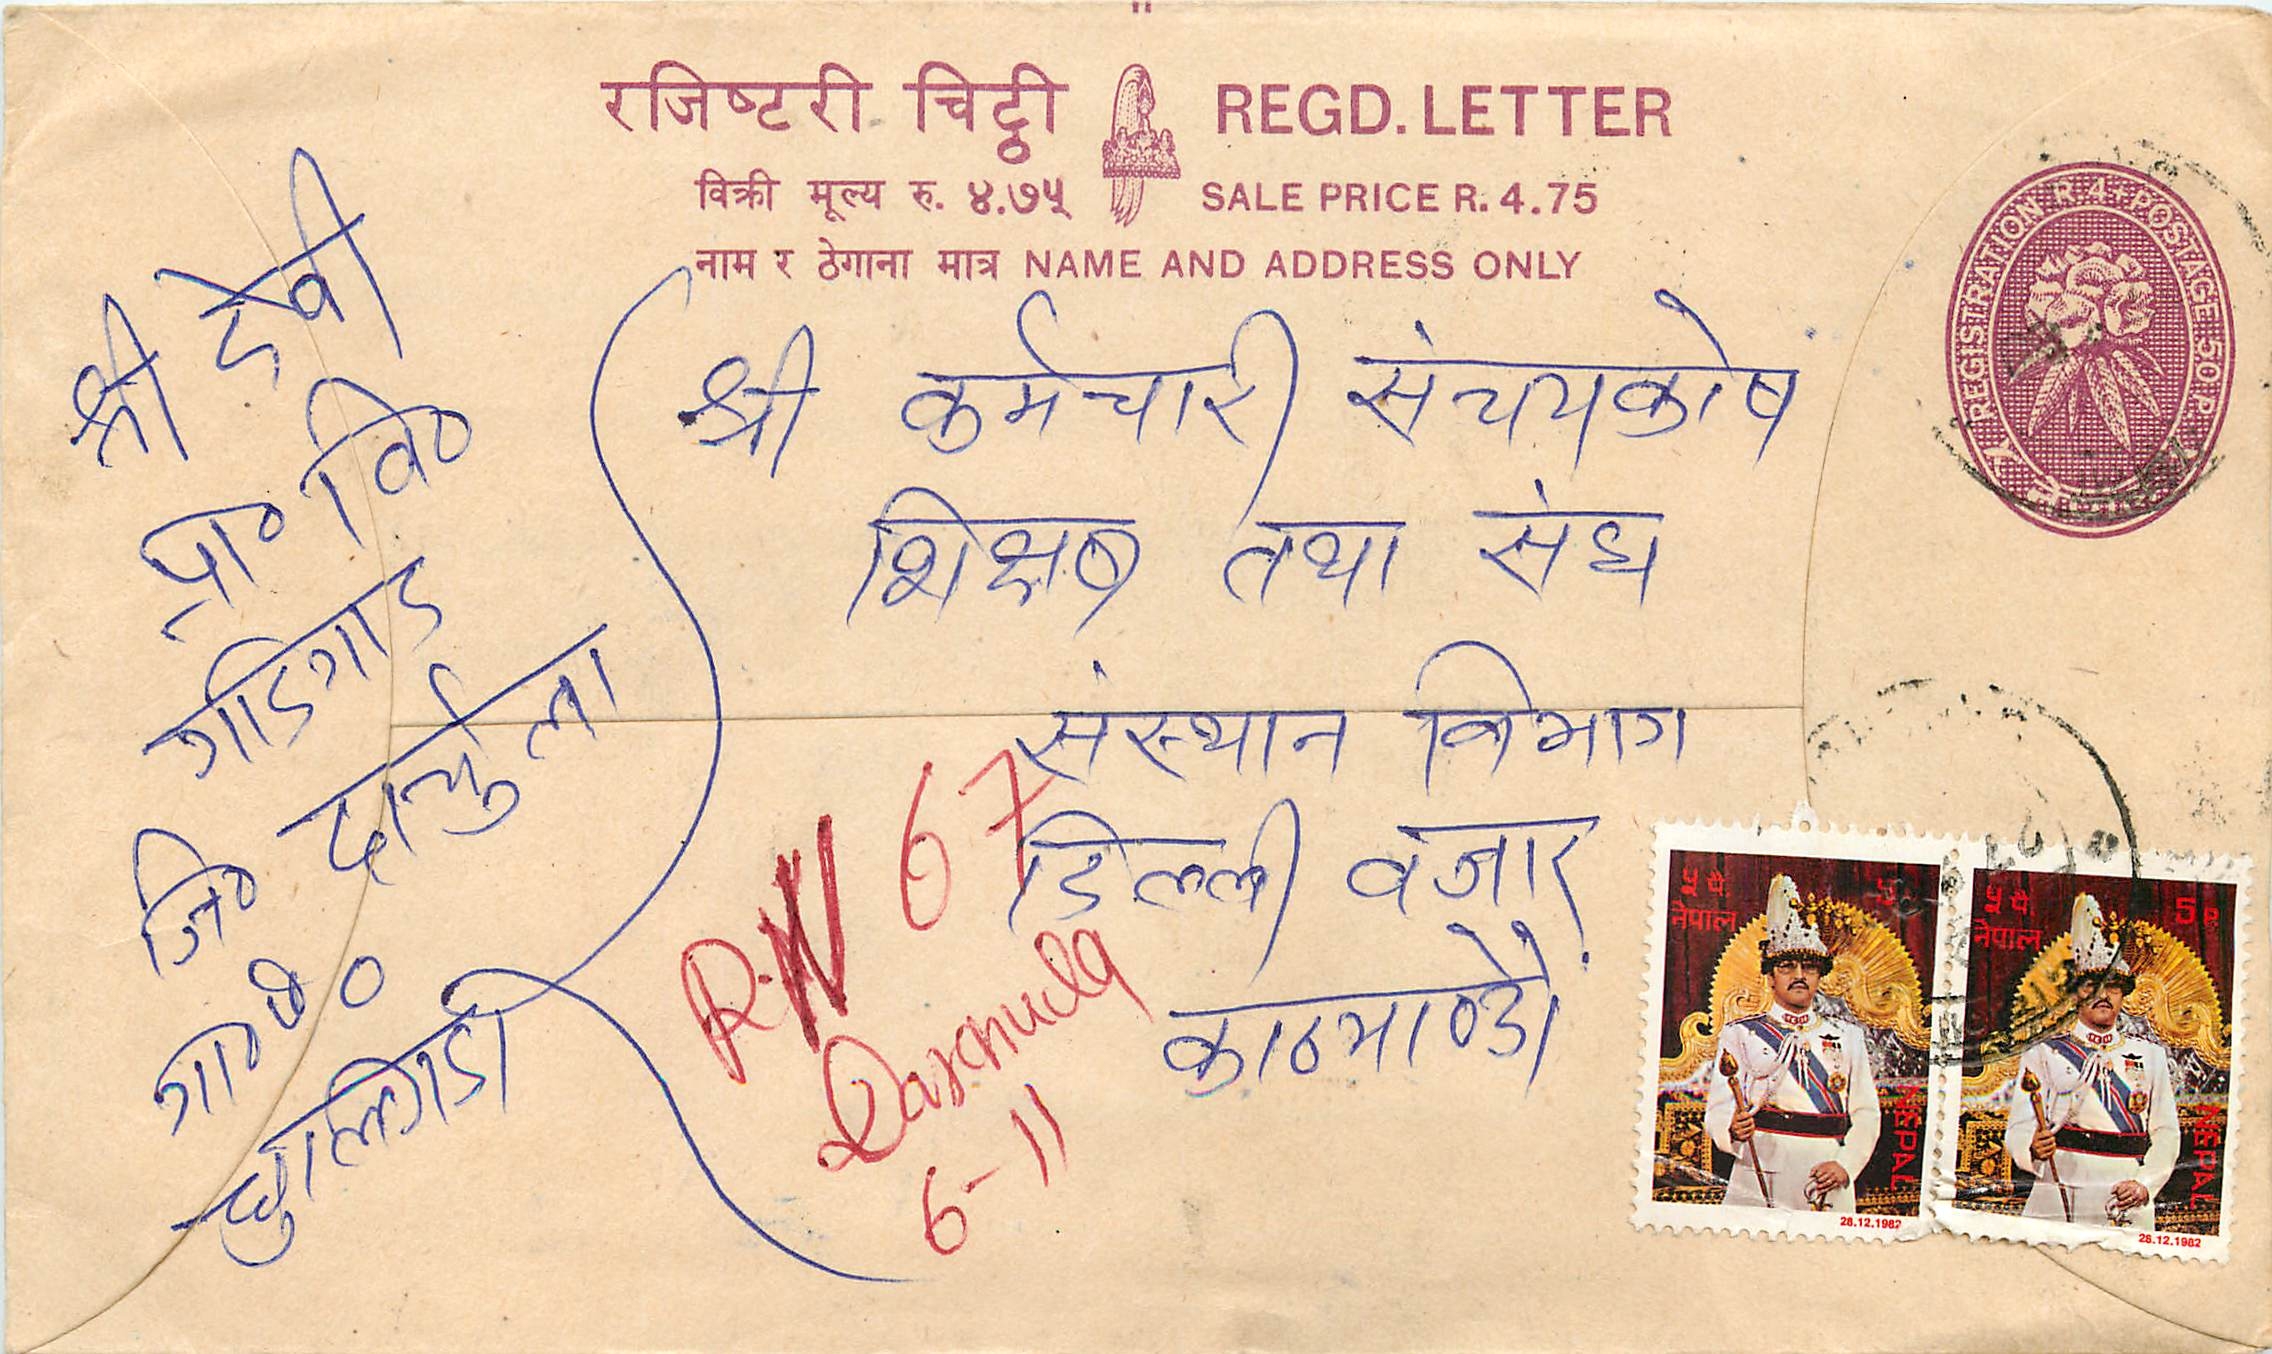 रजिष्टरी चिट्ठी REGD. LETTER
विक्री मूल्य रु. ४.७५ SALE PRICE R. 4.75
नाम र ठेगाना मात्र NAME AND ADDRESS ONLY
REGISTRATION R 4+ POSTAGE 50 P.
श्री देवी
प्रा० वि०
गाडिगाड
जि० दार्चुला
गा०
श्री कर्मचारी संचयकोष
शिक्षक तथा संघ
संस्थान विभाग
डिल्ली वजार
काठमाण्डौ
R.N 67
Darchula
6-11
५ पै.
नेपाल
NEPAL
28.12.1982
५ पै. 5 P
नेपाल
NEPAL
28.12.1982